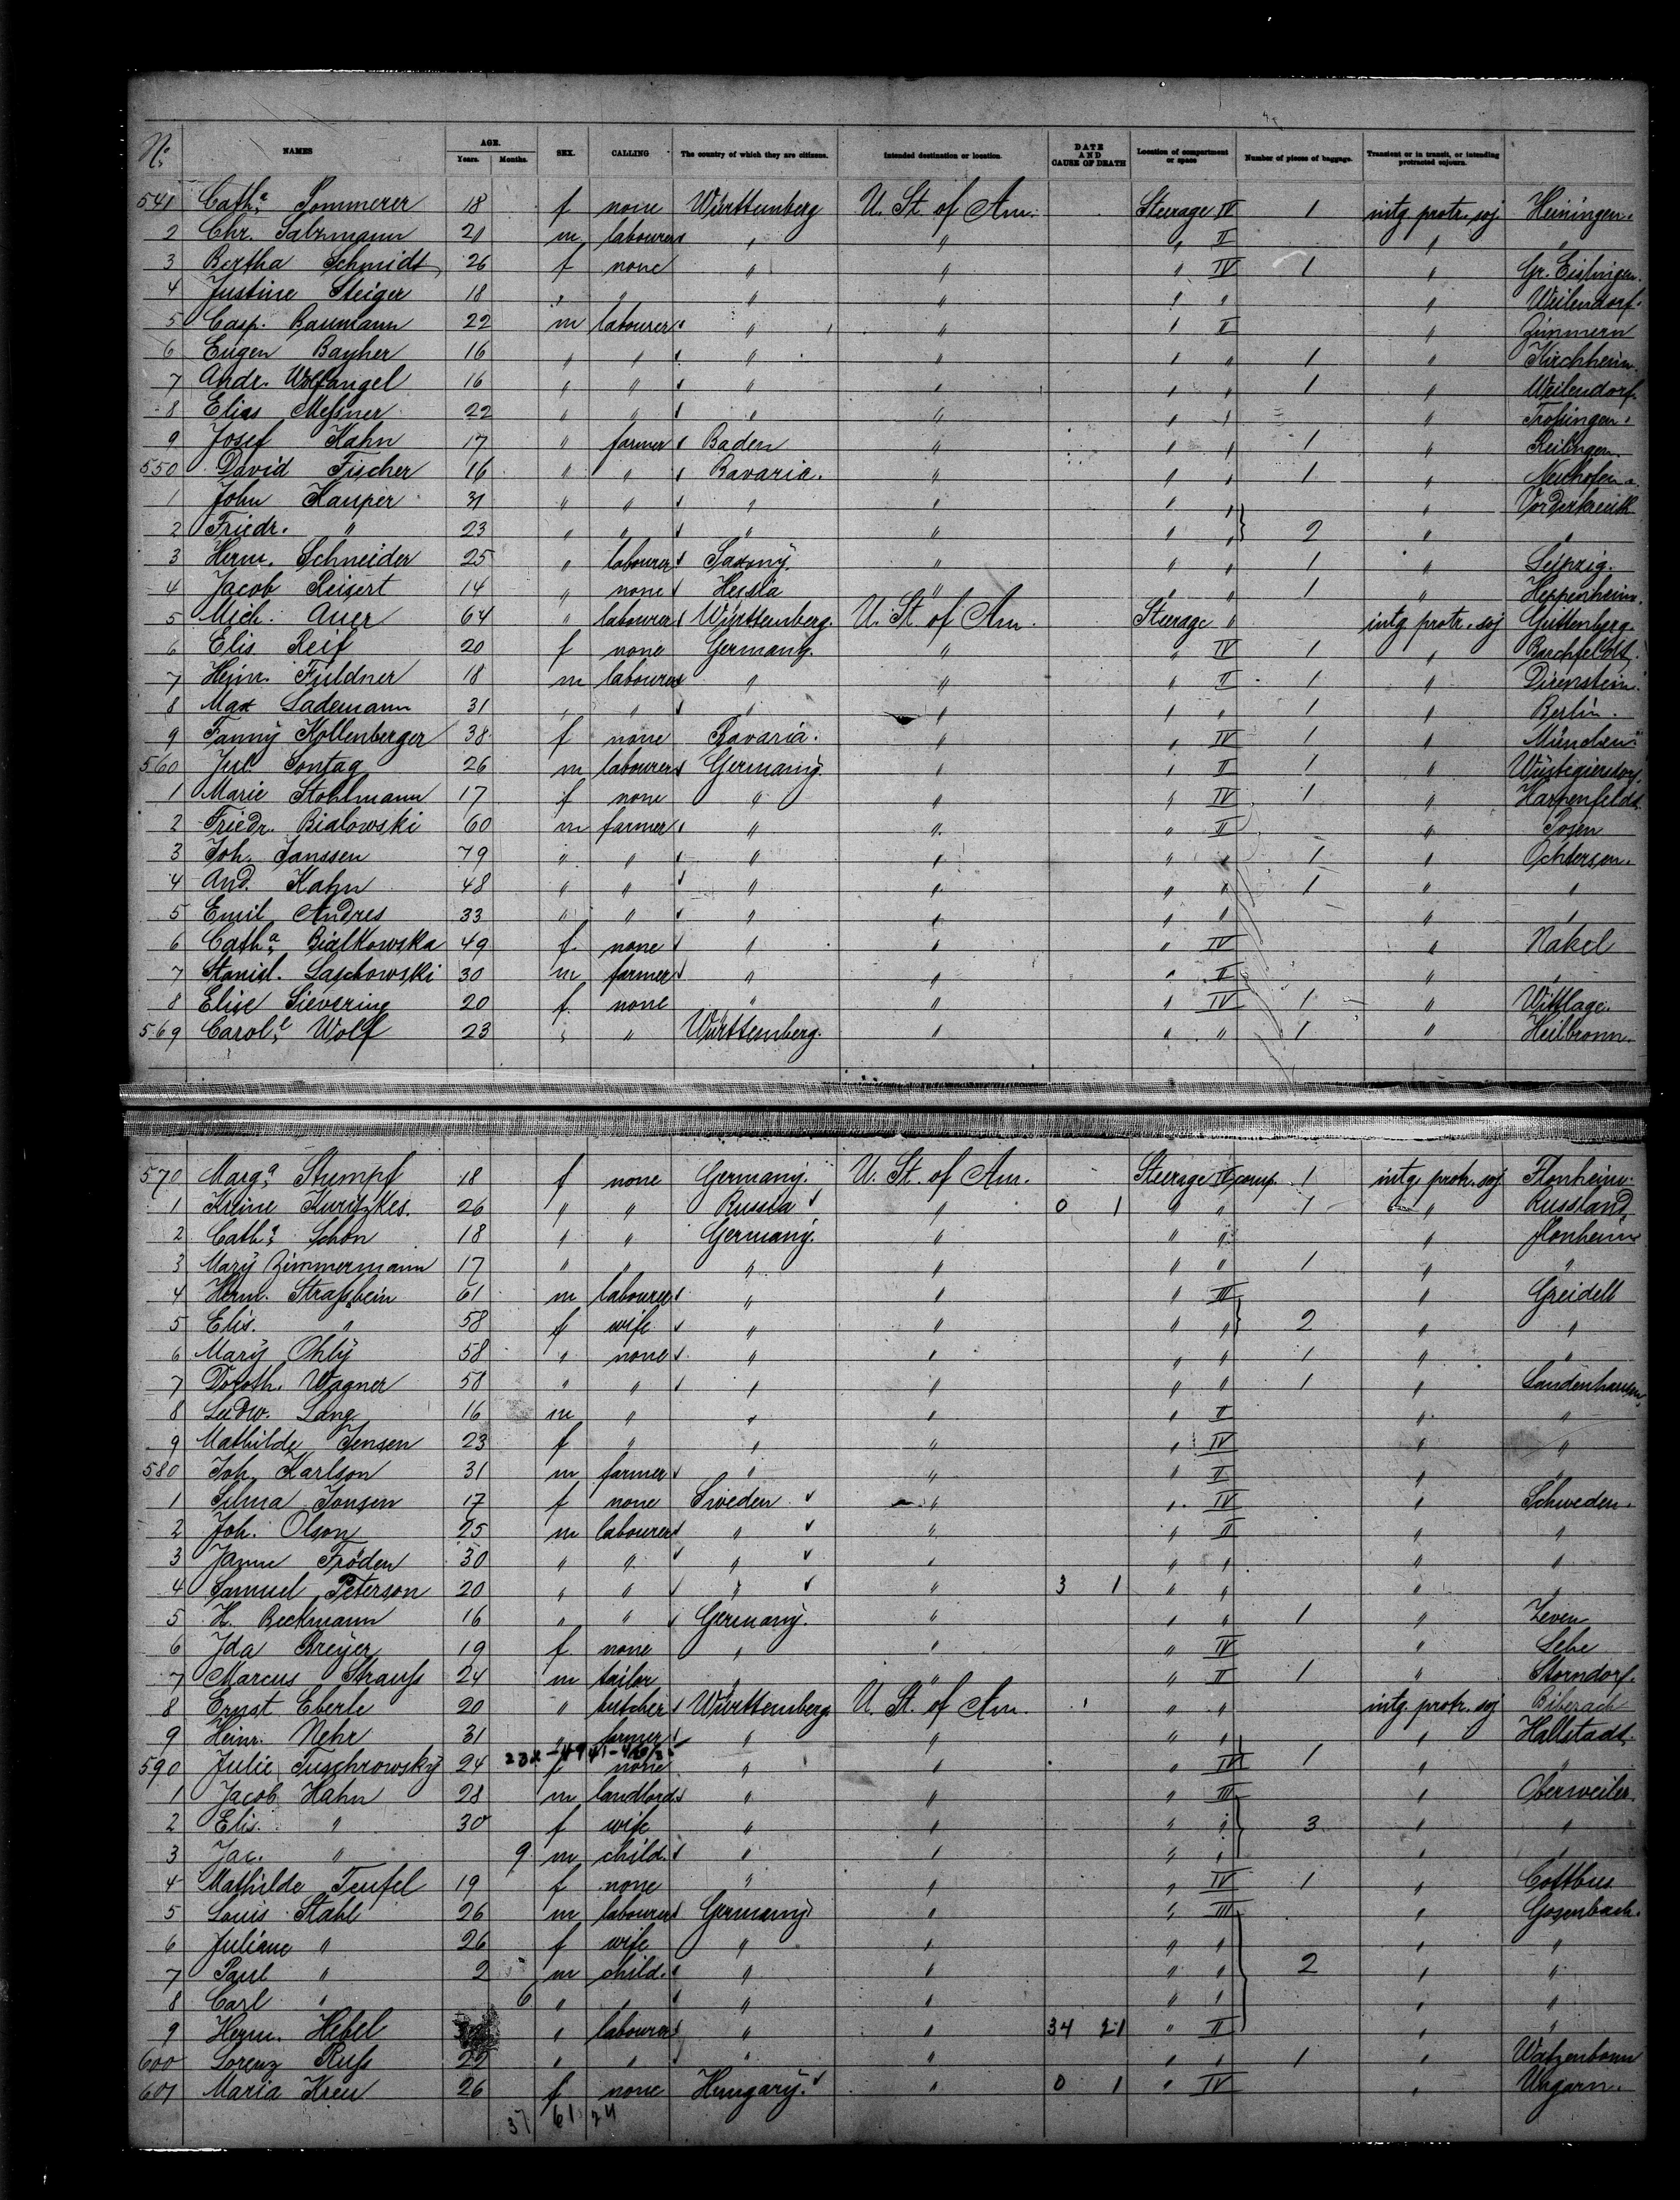 No. NAMES AGE. Years. Months. SEX. CALLING The country of which they are citizens. Intended destination or location. DATE AND CAUSE OF DEATH Location of compartment or space Number of pieces of baggage. Transient or in transit, or intending protracted sojourn.
541 Cath.a Pommerer 18 f none Württemberg U. St. of Am. Steerage IV 1 intg protr. soj Heiningen.
2 Chr. Salzmann 21 m labourer " " " II " "
3 Bertha Schmidt 26 f none " " " IV 1 " Gr. Eislingen.
4 Justine Steiger 18 " " " " " " " Weilendorf.
5 Casp. Baumann 22 m labourer " " " II " Zimmern
6 Eugen Bayher 16 " " " " " " 1 " Kirchheim.
7 Andr. Wolfangel 16 " " " " " " 1 " Weilendorf.
8 Elias Meßner 22 " " " " " " " Troßingen.
9 Josef Kahn 17 " farmer Baden " " " 1 " Reilingen.
550 David Fischer 16 " " Bavaria. " " " 1 " Neuhofen.
1 John Kasper 31 " " " " " " "
2 Friedr. " 23 " " " " " " 2 " "
3 Herm. Schneider 25 " labourer Saxony. " " " 1 " Leipzig.
4 Jacob Reisert 14 " none Hessia " " " 1 " Heppenheim.
5 Mich. Auer 64 " labourer Württemberg. U. St. of Am. Steerage " intg protr. soj Guttenberg.
6 Elis Reif 20 f none Germany. " " IV 1 "
7 Heinr. Fuldner 18 m labourer " " " II 1 " Dirnstein.
8 Max Lademann 31 " " " " " " 1 " Berlin.
9 Fanny Kollenberger 38 f none Bavaria. " " IV 1 " München
560 Jul. Sontag 26 m labourer Germany. " " II 1 " Wüstegiersdorf.
1 Marie Stohlmann 17 f none " " " IV 1 " Karpenfeldt
2 Friedr. Bialowski 60 m farmer " " " II " Posen
3 Joh. Janssen 79 " " " " " " 1 " Ochtersen.
4 And. Kahn 48 " " " " " " 1 " "
5 Emil Andres 33 " " " " " " " "
6 Cath.a Bialkowska 49 f. none " " " IV " Nakel
7 Stanisl. Laschowski 30 m farmer " " " II " "
8 Elise Sievering 20 f. none " " " IV 1 " Wittlage.
569 Carol.e Wolf 23 " " Württemberg. " " " 1 " Heilbronn.
570 Marg.a Stumpf 18 f none Germany. U. St. of Am. Steerage IV comp. 1 intg. protr. soj Flonheim.
1 Kuritzkes. 26 " " Russia " 0 1 " " 1 " Russland
2 Cath.a Schön 18 " " Germany. " " " " Flonheim
3 Mary Zimmermann 17 " " " " " " 1 " "
4 Herm. Straßbein 61 m labourer " " " III " Greidelt
5 Elis. " 58 f wife " " " " 2 " "
6 Mary Ohly 58 " none " " " " 1 " "
7 Doroth. Wagner 58 " " " " " " 1 " Landenhausen.
8 Ludw. Lang 16 m " " " " II " "
9 Mathilde Jensen 23 f " " " " IV " "
580 Joh. Karlson 31 m farmer " " " II " "
1 Silma Jonsen 17 f none Sweden " " IV " Schweden.
2 Joh. Olson 25 m labourer " " " II " "
3 Fröden 30 " " " " " " " "
4 Samuel Peterson 20 " " " " 3 1 " " " "
5 H. Beckmann 16 " " Germany. " " " 1 " Zeven
6 Ida Breyer 19 f none " " " IV " Lehe
7 Marcus Strauß 24 m tailor " " " II 1 " Storndorf.
8 Ernst Eberle 20 " butcher Württemberg. U. St. of Am. " " intg. protr. soj Biberach
9 Heinr. Nehr 31 " farmer " " " " " Hallstadt.
590 Julie Tuschrowsky 24 f none " " " IV 1 " "
1 Jacob Hahn 28 m landlord " " " III " Oberweiler.
2 Elis. " 30 f wife " " " " 3 " "
3 Jac. " 9 m child. " " " " " "
4 Mathilde Teufel 19 f none " " " IV 1 " Cottbus
5 Louis Stahl 26 m labourer Germany " " III " Gosenbach.
6 Juliane " 26 f wife " " " " " "
7 Paul " 2 m child. " " " " 2 " "
8 Carl " 6 " " " " " " " "
9 Herm. Hebel " labourer " " 34 21 " II " "
600 Lorenz Ruß 22 " " " " " " 1 " Watzenborn
601 Maria Kreu 26 f none Hungary. " 0 1 " IV " Ungarn.
37 61 24